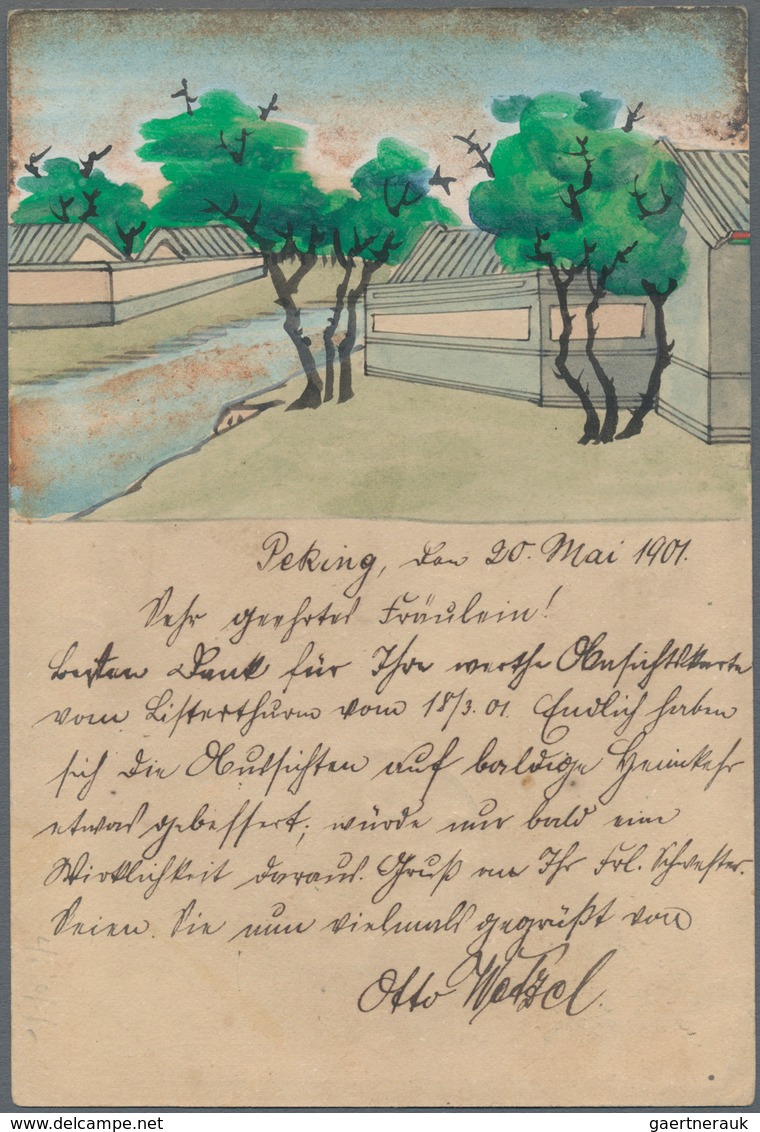 Peking, den 20. Mai 1901.
Sehr geehrtes Fräulein!
Besten Dank für Ihre werthe Ansichtskarte
vom Listerthurm vom 18/3.01. Endlich haben
sich die Aussichten auf baldige Heimkehr
etwas gebessert; würde nur bald eine
Wirklichkeit daraus. Gruß an Ihr Frl. Schwester.
Seien Sie nun vielmals gegrüßt von
Otto Wetzel.
www.delcampe.net
gaertnerauk